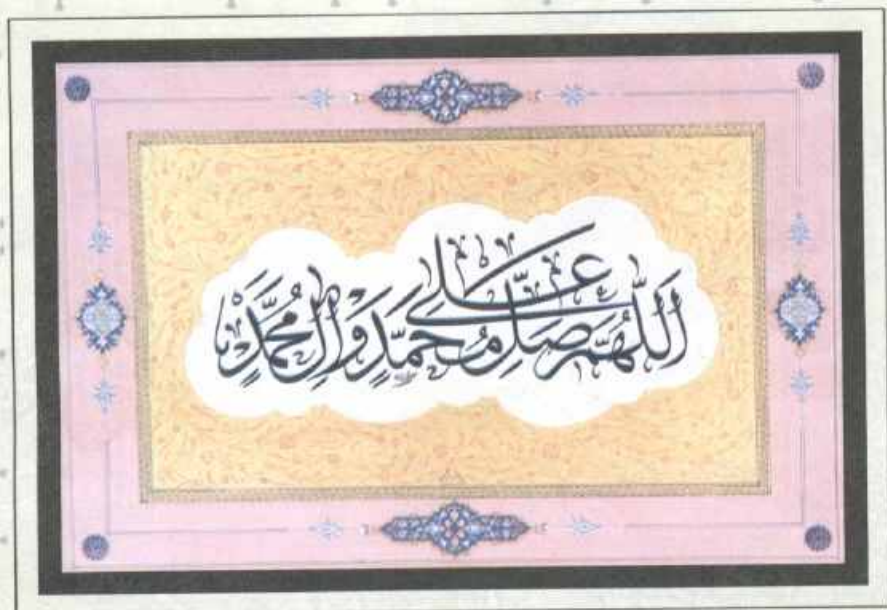 اَللّٰهُمَّ صَلِّ عَلٰی مُحَمَّدٍ وَ اٰلِ مُحَمَّدٍ